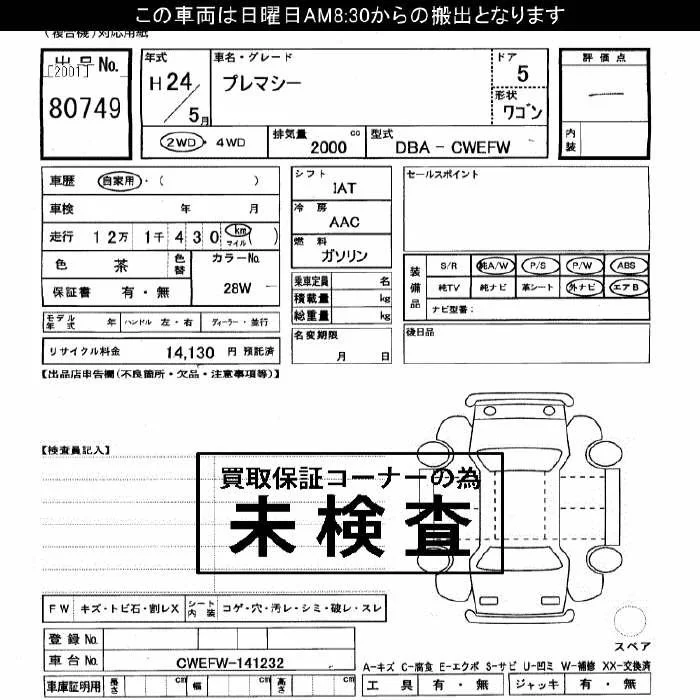 この車両は日曜日AM8:30からの搬出となります
(複合機)対応用紙
出品No.
[2001]
80749
年式
H24/5月
車名・グレード
プレマシー
ドア
5
形状
ワゴン
評価点
―
内装
2WD・4WD
排気量 cc
2000
型式
DBA - CWEFW
車歴 自家用・( )
車検 年 月
走行 12万 1千 430 km マイル ( )
色 茶 色替
カラーNo.
28W
保証書 有・無
シフト
IAT
冷房
AAC
燃料
ガソリン
乗車定員 名
積載量 kg
総重量 kg
セールスポイント
装備品
S/R 純A/W P/S P/W ABS
純TV 純ナビ 革シート 外ナビ エアB
ナビ型番:
モデル年式 年 ハンドル 左・右 ディーラー・並行
リサイクル料金 14,130 円 預託済
名変期限
月 日
後日品
【出品店申告欄(不良箇所・欠品・注意事項等)】
【検査員記入】
買取保証コーナーの為
未検査
FW キズ・トビ石・割レX シート内装 コゲ・穴・汚レ・シミ・破レ・スレ
登録No.
車台No. CWEFW-141232
車庫証明用 長さ cm 幅 cm 高さ cm
スペア
A-キズ C-腐食 E-エクボ S-サビ U-凹ミ W-補修 XX-交換済
工具 有・無 ジャッキ 有・無